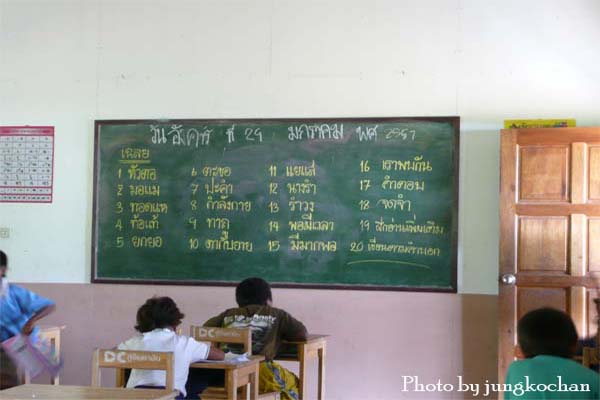 วัน อังคาร ที่ 29 มกราคม พศ 2551
เฉลย
1 หัวตอ
2 มอแม
3 ทอดแห
4 ท้อแท้
5 ยกยอ
6 ตะขอ
7 ปะคำ
8 กำลังกาย
9 ทาก
11 แยแส
12 นางรำ
13 รำวง
14 พอมีเวลา
15 มีมากพอ
16 เราพบกัน
17 คำตอบ
18 จดจำ
19 สื่ออ่านเพิ่มเติม
20 เขียนตามคำบอก
DC
DC
Photo by jungkochan